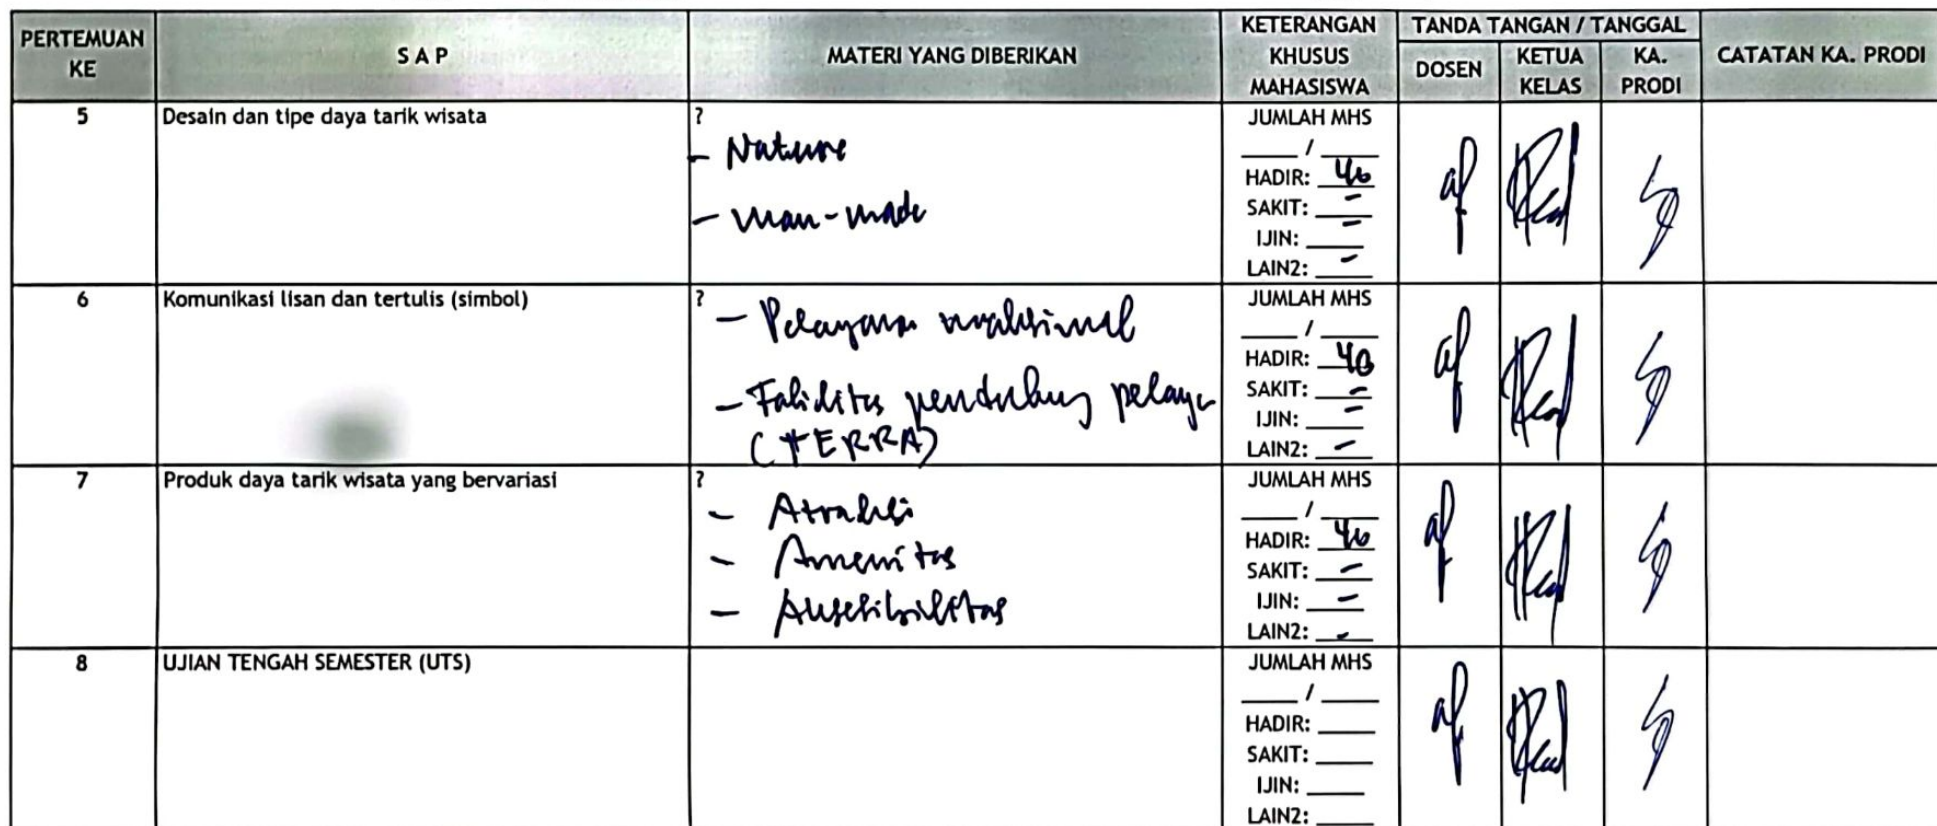 PERTEMUAN KE
S A P
MATERI YANG DIBERIKAN
KETERANGAN KHUSUS MAHASISWA
TANDA TANGAN / TANGGAL
DOSEN
KETUA KELAS
KA. PRODI
CATATAN KA. PRODI
5
Desain dan tipe daya tarik wisata
?
- Nature
- man-made
JUMLAH MHS
___ / ___
HADIR: 40
SAKIT: -
IJIN: -
LAIN2: -
6
Komunikasi lisan dan tertulis (simbol)
?
- Pelayanan maksimal
- Fasilitas pendukung
(TERRA)
JUMLAH MHS
___ / ___
HADIR: 40
SAKIT: -
IJIN: -
LAIN2: -
7
Produk daya tarik wisata yang bervariasi
?
- Atraksi
- Amenitas
- Aksesibilitas
JUMLAH MHS
___ / ___
HADIR: 40
SAKIT: -
IJIN: -
LAIN2: -
8
UJIAN TENGAH SEMESTER (UTS)
JUMLAH MHS
___ / ___
HADIR: ___
SAKIT: ___
IJIN: ___
LAIN2: ___